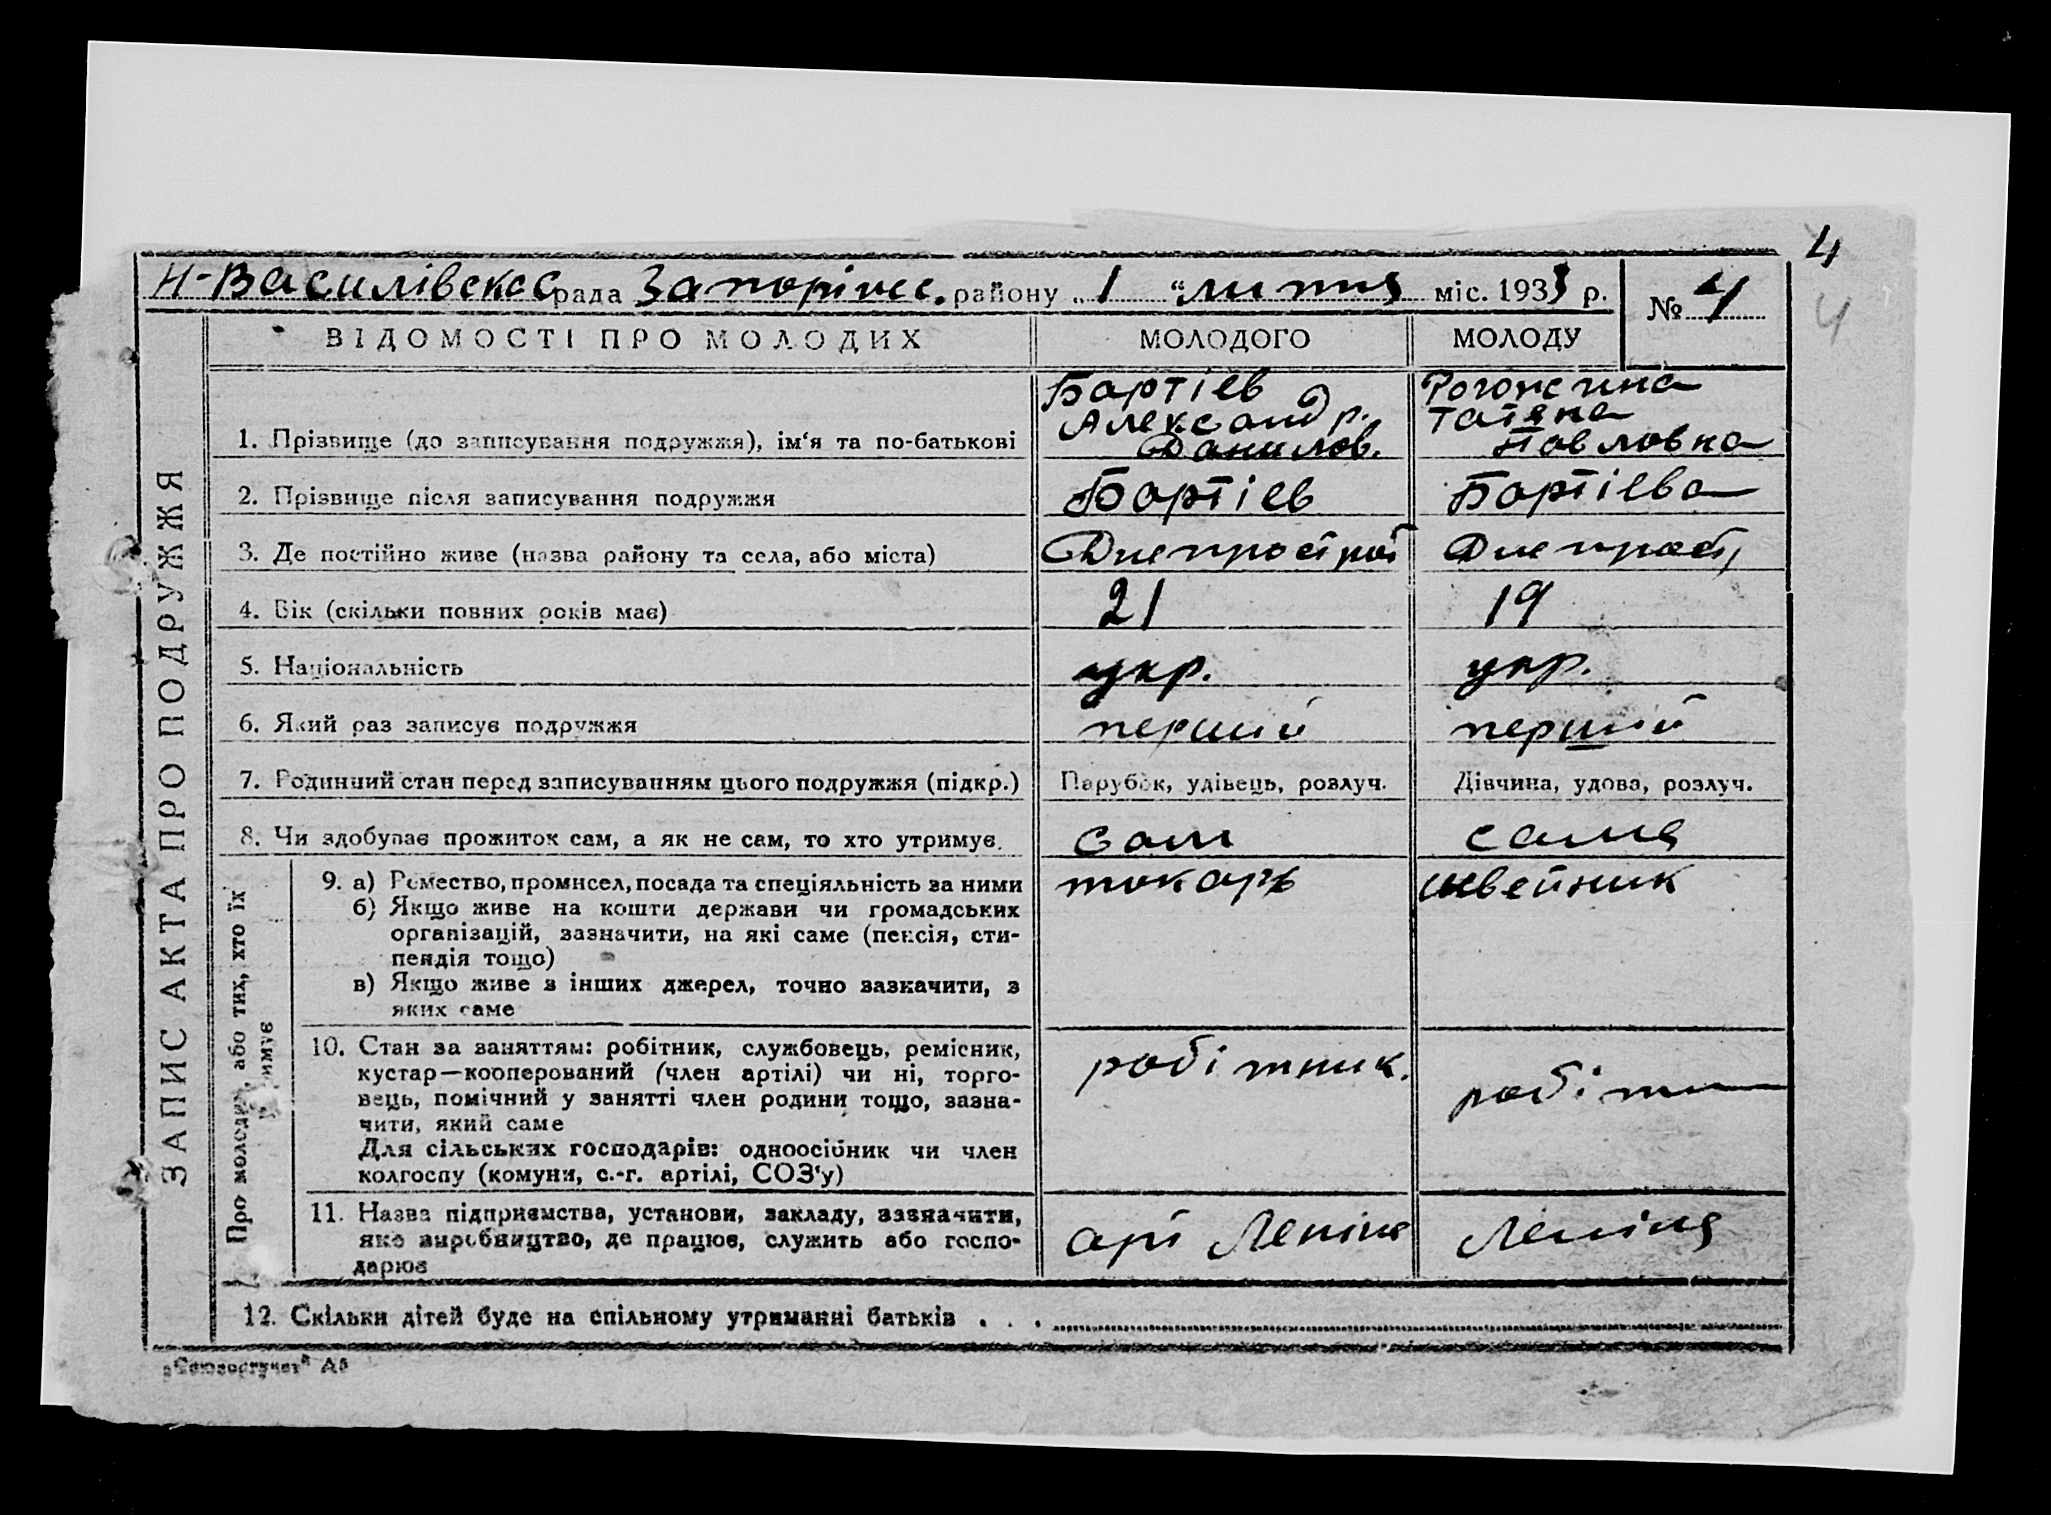 4
Н-Василівська рада Запоріжс. району „1" липня міс. 1933 р. № 4
4
ВІДОМОСТІ ПРО МОЛОДИХ МОЛОДОГО МОЛОДУ
ЗАПИС АКТА ПРО ПОДРУЖЖЯ
1. Прізвище (до записування подружжя), ім'я та по-батькові
Бартієв
Александр.
Данилов.
Рогожина
Татяна
Павловна
2. Прізвище після записування подружжя Бартієв Бартієва
3. Де постійно живе (назва району та села, або міста) Днепрострой Днепростр
4. Вік (скільки повних років має) 21 19
5. Національність укр. укр.
6. Який раз записує подружжя перший перший
7. Родинний стан перед записуванням цього подружжя (підкр.) Парубок, удівець, розлуч. Дівчина, удова, розлуч.
8. Чи здобуває прожиток сам, а як не сам, то хто утримує. сам сама
Про молодих, або тих, хто їх
9. а) Ремество, промисел, посада та спеціяльність за ними токарь швейник
б) Якщо живе на кошти держави чи громадських
організацій, зазначити, на які саме (пенсія, сти-
пендія тощо)
в) Якщо живе з інших джерел, точно зазначити, з
яких саме
10. Стан за заняттям: робітник, службовець, ремісник,
кустар—кооперований (член артілі) чи ні, торго-
вець, помічний у занятті член родини тощо, зазна-
чити, який саме
Для сільських господарів: одноосібник чи член
колгоспу (комуни, с.-г. артілі, СОЗ'у)
робітник. робітн
11. Назва підприємства, установи, закладу, зазначити,
яке виробництво, де працює, служить або госпо-
дарює
арт Леніна Леніна
12. Скільки дітей буде на спільному утриманні батьків . . .